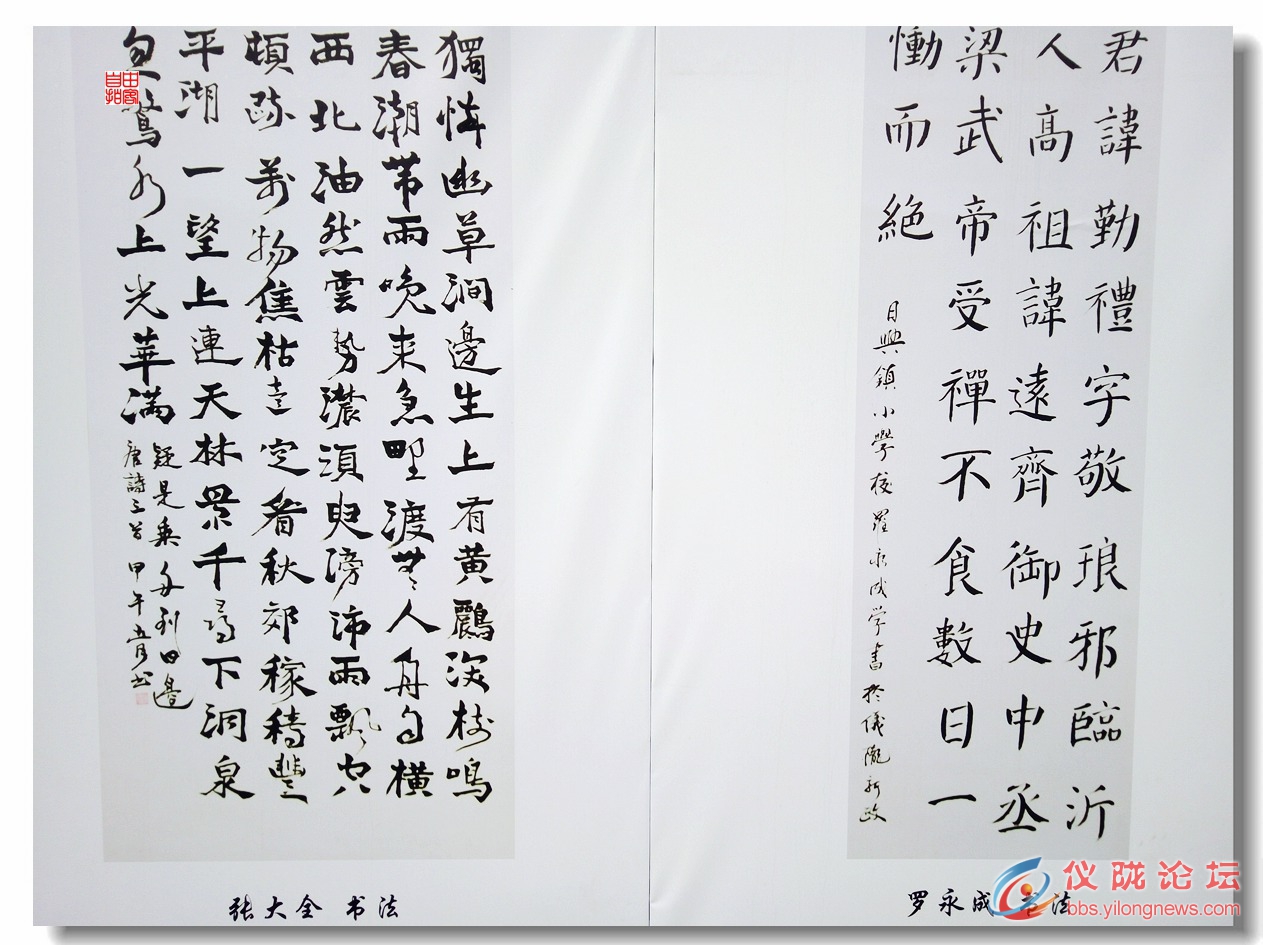 獨憐幽草澗邊生上有黃鸝深樹鳴
春潮帶雨晚來急野渡無人舟自橫
西北油然雲勢濃須臾滂沛雨飄空
頓疏萬物焦枯意定看秋郊稼穡豐
平湖一望上連天林景千尋下洞泉
忽驚水上光華滿
疑是乘舟到日邊
唐詩三首甲午五月书
张大全 书法
君諱勤禮字敬琅邪臨沂
人高祖諱遠齊御史中丞
梁武帝受禪不食數日一
慟而絕
日興鎮小學校羅永成学書於儀隴新政
罗永成 书法
仪陇论坛
bbs.yilongnews.com